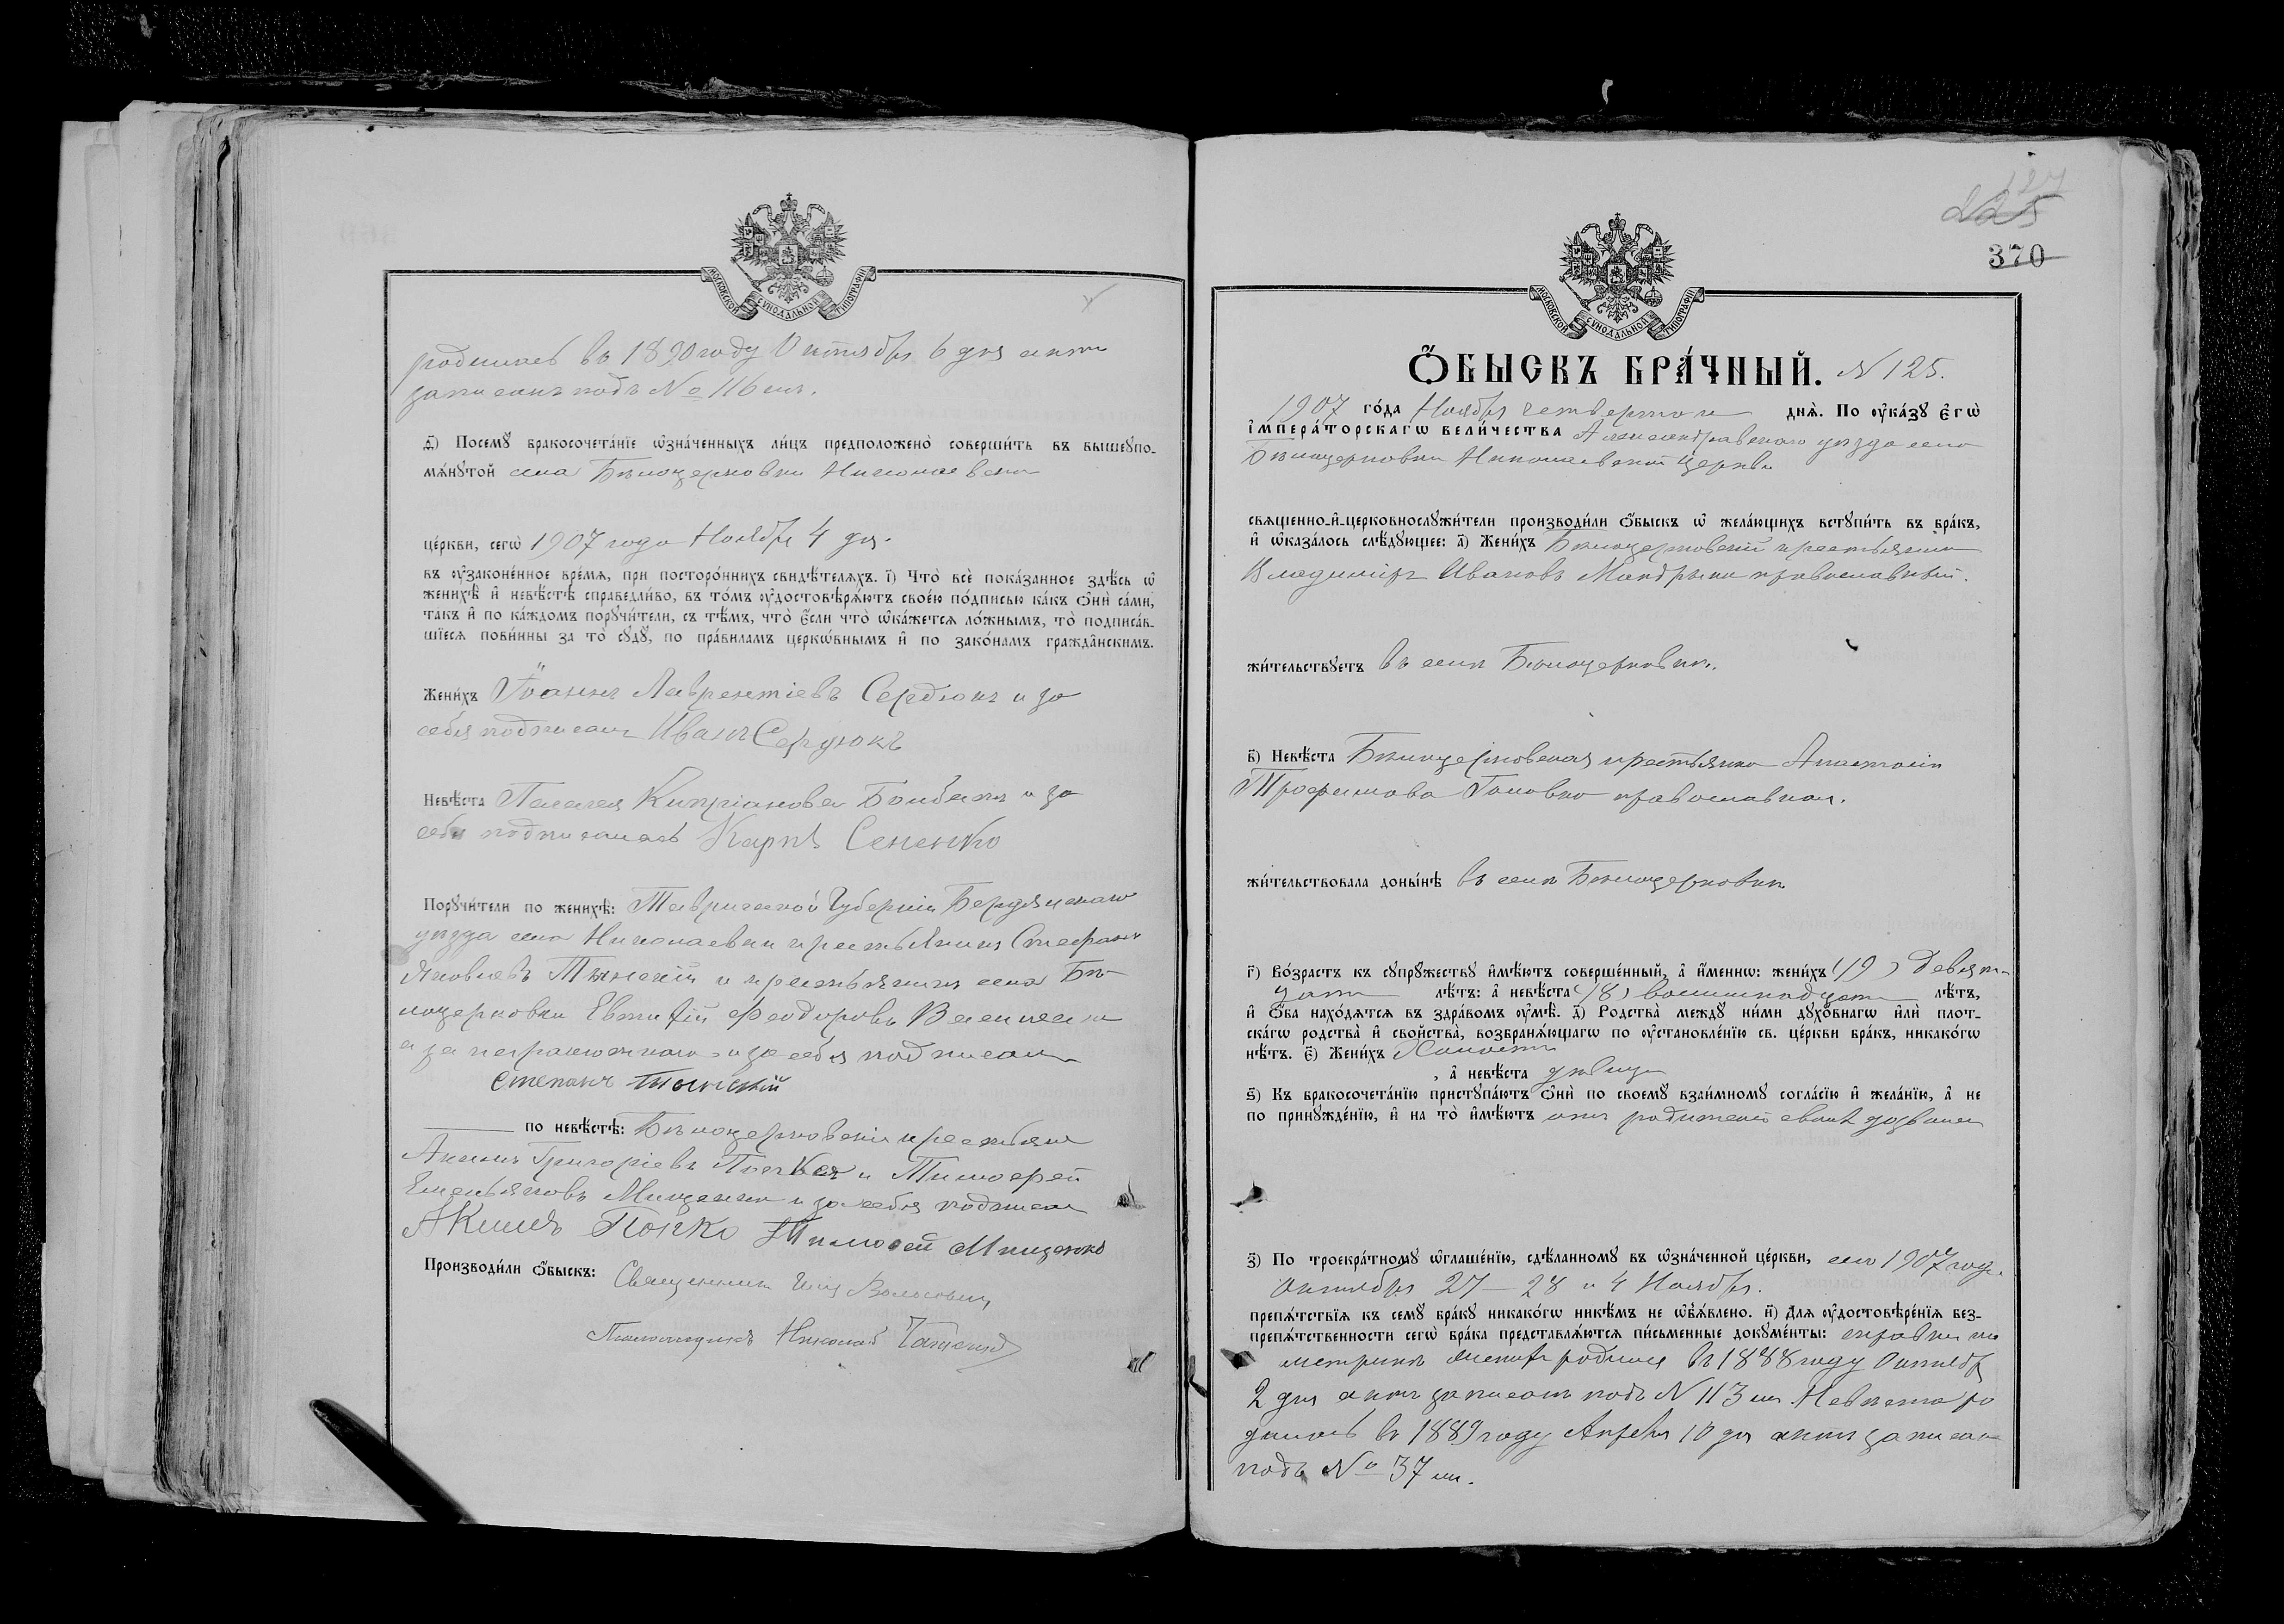 МОСКОВСКОЙ СУНОДАЛЬНОЙ ТИПОГРАФІИ
родилась въ 1890 году Октября 6 дня актъ
записанъ подъ № 116 мъ.
д҃і) Посемꙋ̀ бракосочета́нїе ѡ҆зна́ченныхъ ли́цъ предположено̀ соверши́ть въ вышеꙋпо-
мѧ́нꙋтой села Бѣлоцерковки Николаевской
це́ркви, сегѡ̀ 1907 года Ноября 4 дня.
въ ᲂу҆законе́нное вре́мѧ, при посторо́ннихъ свидѣ́телѧхъ. і҃) Что̀ всѐ пока́занное здѣ́сь ѡ҆
женихѣ̀ и҆ невѣ́стѣ справедли́во, въ то́мъ ᲂу҆достовѣрѧ́ютъ свое́ю по́дписью ка́къ ѻ҆нѝ са́ми,
та́къ и҆ по ка́ждомъ порꙋчи́тели, съ тѣ́мъ, что̀ є҆́сли что̀ ѡ҆ка́жетсѧ ло́жнымъ, то̀ подписа́в-
шїесѧ пови́нны за то̀ сꙋдꙋ̀, по пра́виламъ церкѡ́внымъ и҆ по зако́намъ гражда́нскимъ.
Жени́хъ Іоаннъ Лаврентіевъ Сердюкъ и за
себя подписалъ Иванъ Сердюкъ
Невѣ́ста Пелагея Кипріанова и за
себя подписалась Карпъ Сененко
Порꙋчи́тели по женихѣ̀: Таврической Губерніи Бердянскаго
уѣзда села Николаевки крестьянинъ Стефанъ
Яковлевъ Тынскій и крестьянинъ села Бѣ-
лоцерковки Евтифій Феодоровъ
и за неграмотнаго и за себя подписалъ
Степанъ Тынскій
по невѣ́стѣ: Бѣлоцерковскіи крестьяне
Акимъ Григоріевъ и Тимофей
Емельяновъ Мищенко и за себя подписали
Акимъ Попко Тимофей Мищенко
Производи́ли ѻ҆́быскъ: Священникъ
Псаломщикъ Николай
127
225
370
МОСКОВСКОЙ СУНОДАЛЬНОЙ ТИПОГРАФІИ
Ѻ҆́БЫСКЪ БРА́ЧНЫЙ. № 125.
1907 го́да Ноября четвертаго днѧ̀. По ᲂу҆ка́зꙋ Є҆гѡ̀
І҆мпера́торскагѡ вели́чества Александровскаго уѣзда села
Бѣлоцерковки Николаевской церкви
свѧще́нно-и҆-церковнослꙋжи́тели производи́ли ѻ҆́быскъ ѡ҆ жела́ющихъ встꙋпи́ть въ бра́къ,
и҆ ѡ҆каза́лось слѣ́дꙋющее: а҃) Жени́хъ Бѣлоцерковскій крестьянинъ
Владиміръ Ивановъ Мандрыка православный.
жи́тельствꙋетъ въ селѣ Бѣлоцерковкѣ.
в҃) Невѣ́ста Бѣлоцерковская крестьянка Анастасія
Трофимова Головко православная.
жи́тельствовала доны́нѣ въ селѣ Бѣлоцерковкѣ
г҃) Во́зрастъ къ сꙋпрꙋ́жествꙋ и҆мѣ́ютъ соверше́нный, а҆ и҆́менно: жени́хъ (19) девят-
цать лѣ́тъ: а҆ невѣ́ста (18) восемнадцать лѣ́тъ,
и҆ ѻ҆́ба нахо́дѧтсѧ въ здра́вомъ ᲂу҆мѣ̀. д҃) Родства̀ междꙋ̀ ни́ми дꙋхо́внагѡ и҆лѝ плот-
ска́гѡ родства̀ и҆ сво́йства̀, возбранѧ́ющагѡ по ᲂу҆становле́нїю св. це́ркви бра́къ, никако́гѡ
нѣ́тъ. є҃) Жени́хъ Холостъ
, а҆ невѣ́ста дѣвица
ѕ҃) Къ бракосочета́нїю пристꙋпа́ютъ ѻ҆нѝ по своемꙋ̀ взаи́мномꙋ согла́сїю и҆ жела́нїю, а҆ не
по принꙋжде́нїю, и҆ на то̀ и҆мѣ́ютъ отъ родителей своихъ дозволен
з҃) По троекра́тномꙋ ѡ҆глаше́нїю, сдѣ́ланномꙋ въ ѡ҆зна́ченной це́ркви, сего 1907 года
Октября 27 — 28 и 4 Ноября.
препѧ́тствїѧ къ семꙋ̀ бра́кꙋ никако́гѡ никѣ́мъ не ѡ҆б̾ѧ́влено. и҃) Длѧ ᲂу҆достовѣре́нїѧ без-
препѧ́тственности сегѡ̀ бра́ка представлѧ́ютсѧ пи́сьменные докꙋме́нты: справки по
метрикѣ Женихъ родился въ 1888 году Октября
2 дня актъ записанъ подъ № 113 мъ Невѣста ро
дилась въ 1889 году Апрѣля 10 дня актъ записанъ
подъ № 37 мъ.